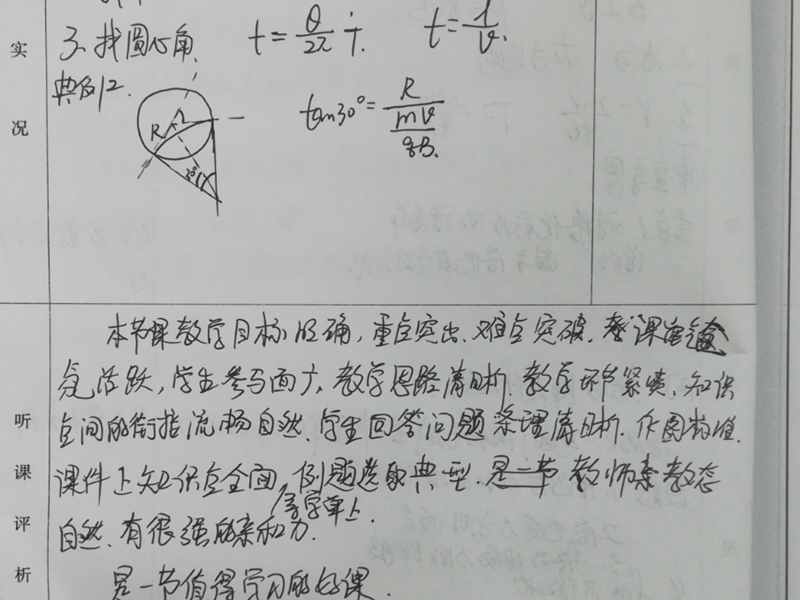 实况
3、找圆心角 t=θ/2π T. t=l/v.
典例2.
tan30°=R/(mv/qB).
R
听课评析
本节课教学目标明确,重点突出、难点突破.课堂
氛活跃,学生参与面广,教学思路清晰.教学环节紧凑、知识
点间的衔接流畅自然.学生回答问题条理清晰.作图规范.
课件上知识点全面,例题选取典型.是一节教师亲教态
导学单上.
自然.有很强的亲和力.
是一节值得学习的好课.